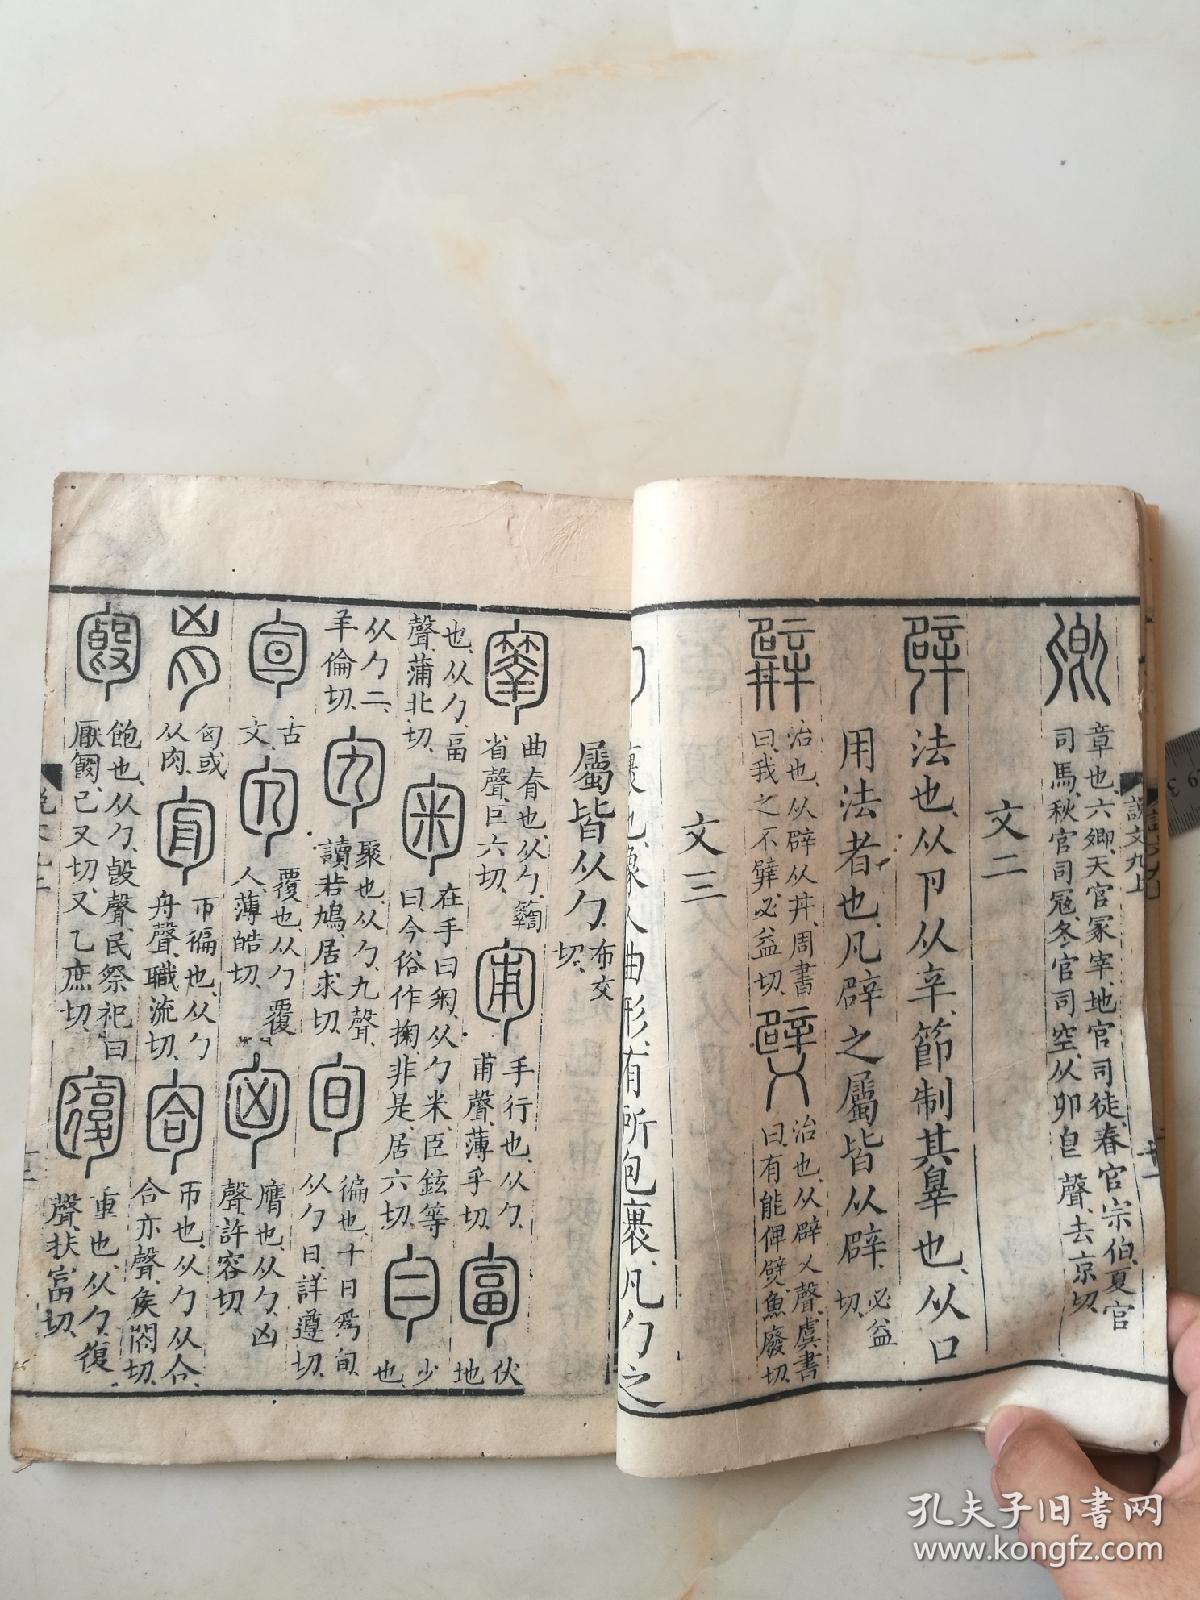 章也六卿天官冢宰地官司徒春官宗伯夏官
司馬秋官司冦冬官司空从卯皀聲去京切
文二
法也从卪从辛節制其辠也从口
用法者也凡辟之屬皆从辟必益切
治也从辟从井周書
曰我之不擘必益切
治也从辟乂聲虞書
曰有能俾嬖魚廢切
文三
裹也象人曲形有所包裹凡勹之
屬皆从勹布交切
曲脊也从勹
省聲巨六切
手行也从勹
甫聲薄乎切
伏地
也从勹畐
聲蒲北切
在手曰匊从勹米臣鉉等
曰今俗作掬非是居六切
少也
从勹二
羊倫切
聚也从勹九聲
讀若鳩居求切
徧也十日爲旬
从勹日詳遵切
古文
覆也从勹覆
人薄皓切
膺也从勹凶
聲許容切
匈或
从肉
帀徧也从勹
舟聲職流切
帀也从勹从合
合亦聲矦閤切
飽也从勹㱿聲民祭祀曰
厭䤋己又切又乙庶切
重也从勹復
聲扶富切
說文九上
孔夫子旧书网
www.kongfz.com